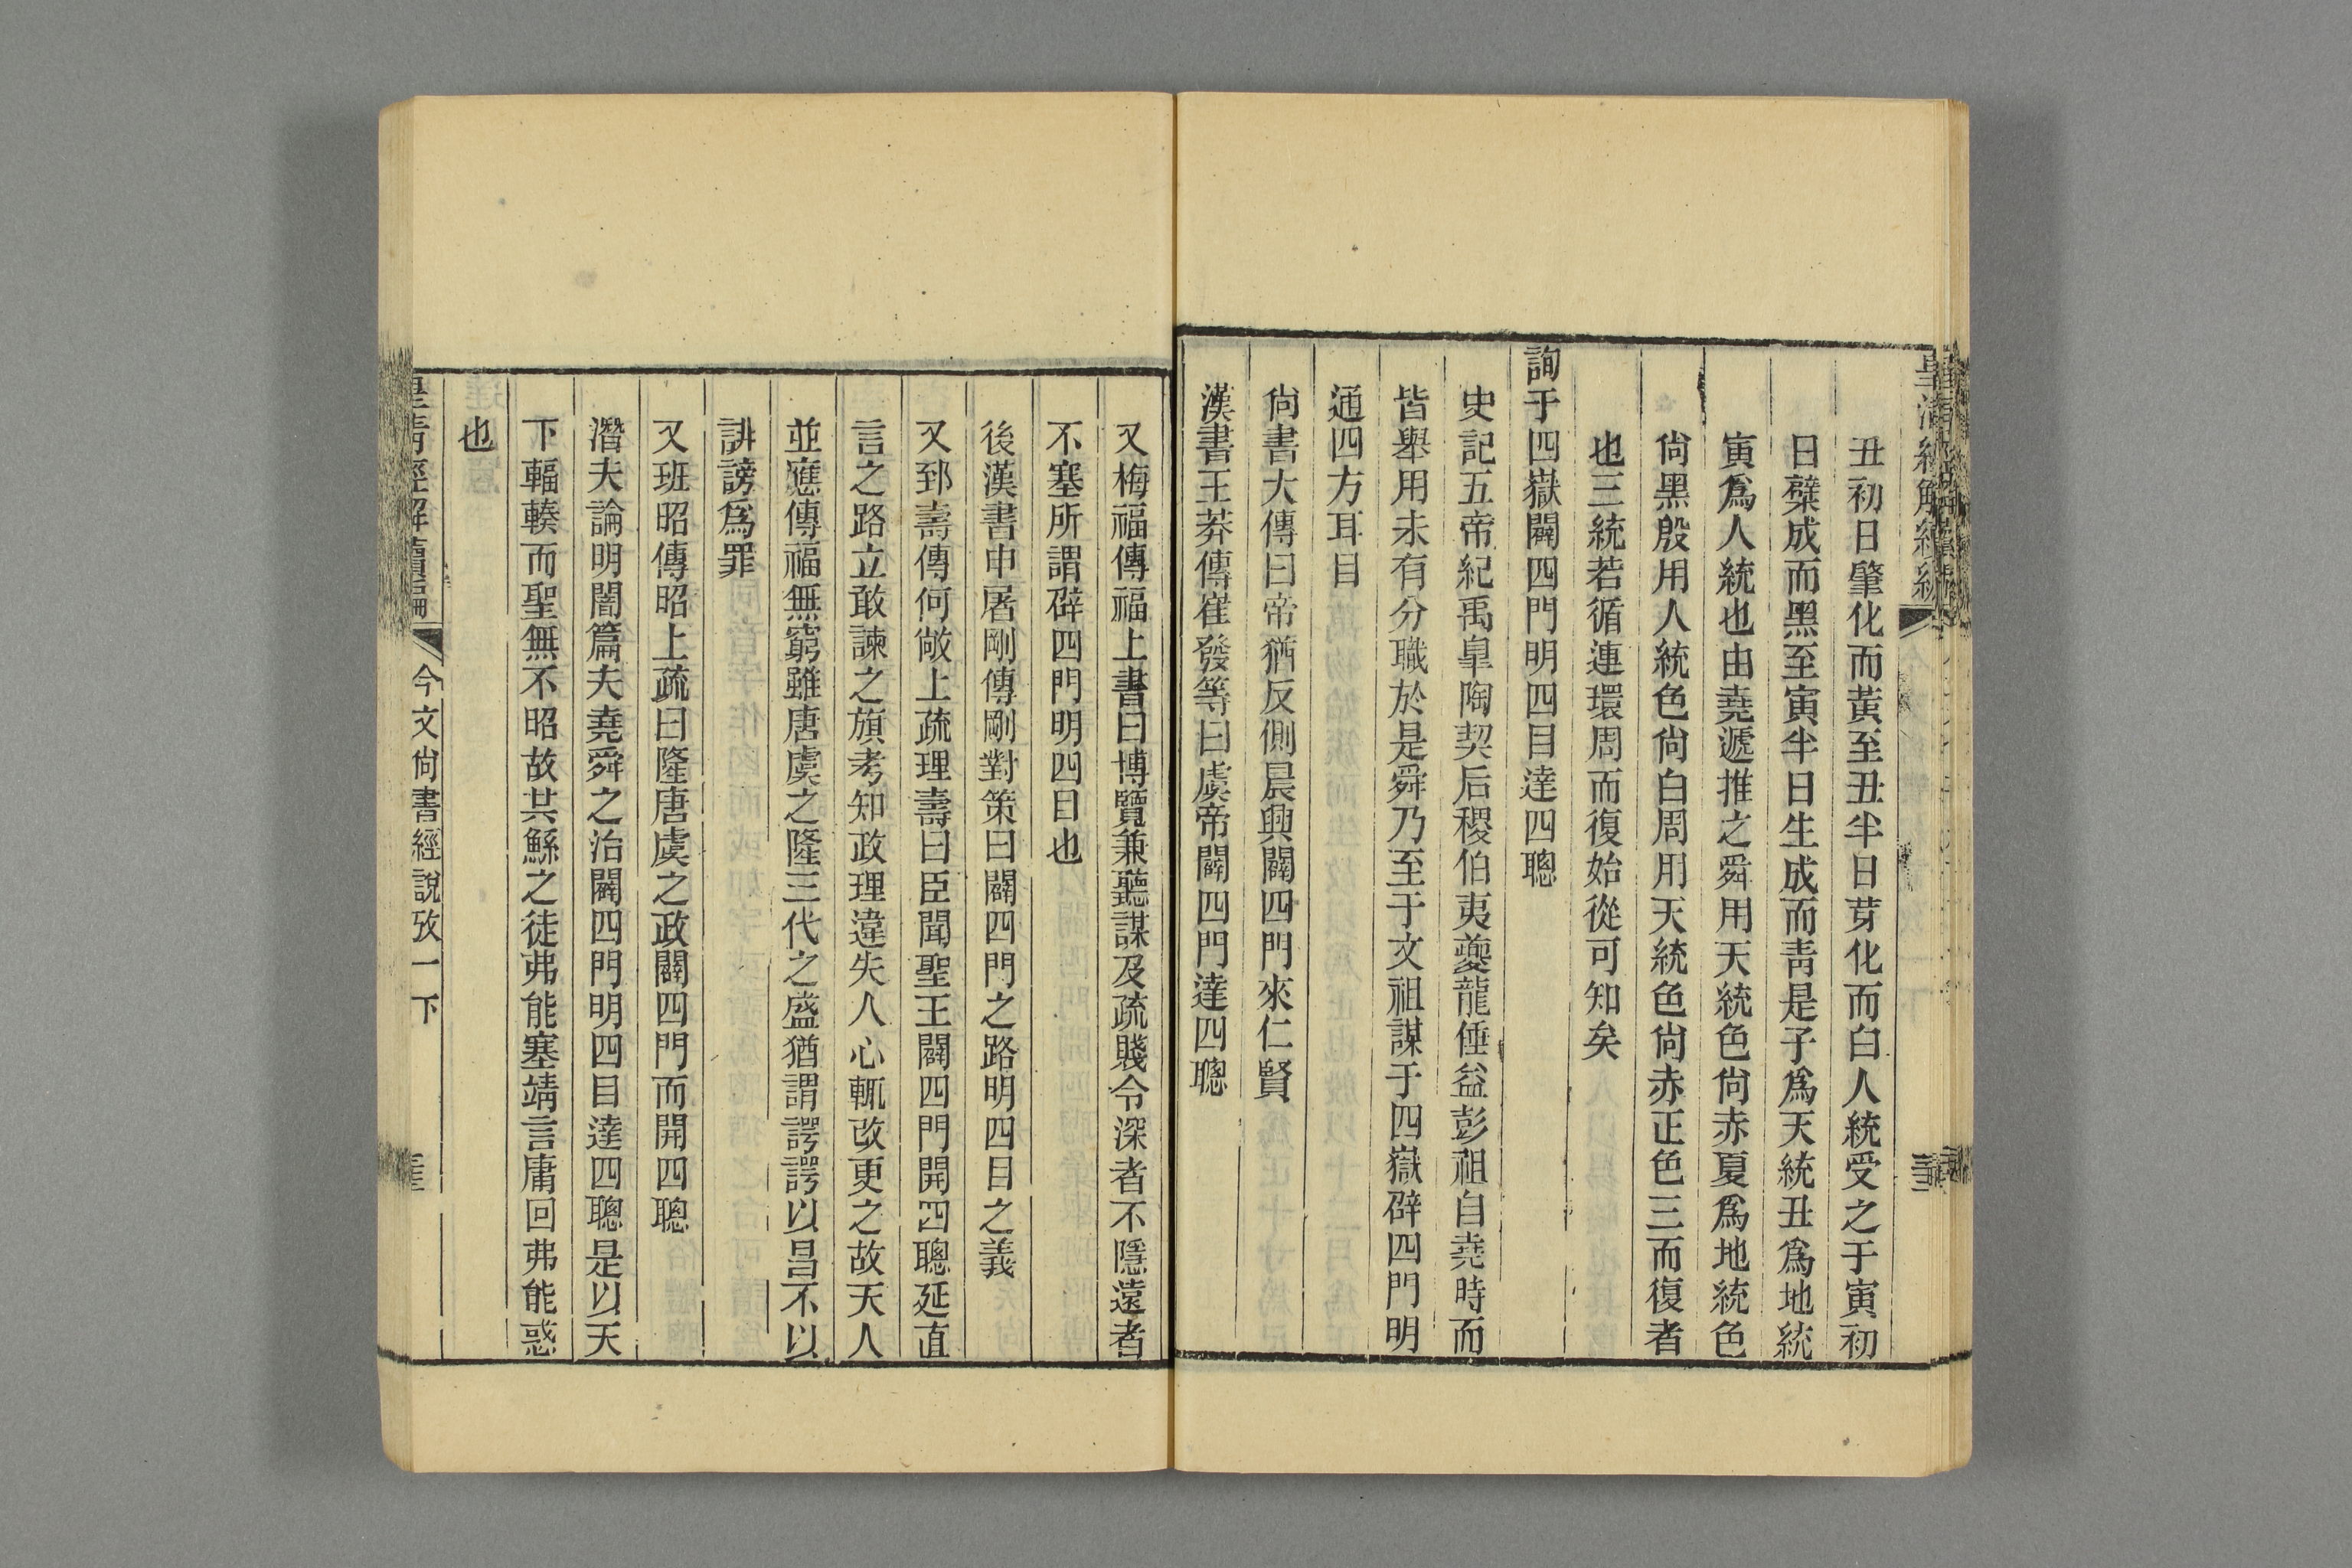 丑初日肇化而黃至丑半日芽化而白人統受之于寅初
日櫱成而黑至寅半日生成而靑是子爲天統丑爲地統
寅爲人統也由堯遞推之舜用天統色尙赤夏爲地統色
尙黑殷用人統色尙白周用天統色尙赤正色三而復者
也三統若循連環周而復始從可知矣
詢于四嶽闢四門明四目達四聰
史記五帝紀禹皐陶契后稷伯夷夔龍倕益彭祖自堯時而
皆舉用未有分職於是舜乃至于文祖謀于四嶽辟四門明
通四方耳目
尙書大傳曰帝猶反側晨興闢四門來仁賢
漢書王莽傳崔發等曰虞帝闢四門達四聰
又梅福傳福上書曰博覽兼聽謀及疏賤令深者不隱遠者
不塞所謂辟四門明四目也
後漢書申屠剛傳剛對策曰闢四門之路明四目之義
又郅壽傳何敞上疏理壽曰臣聞聖王闢四門開四聰延直
言之路立敢諫之旗考知政理違失人心輒改更之故天人
並應傳福無窮雖唐虞之隆三代之盛猶謂諤諤以昌不以
誹謗爲罪
又班昭傳昭上疏曰隆唐虞之政闢四門而開四聰
潛夫論明闇篇夫堯舜之治闢四門明四目達四聰是以天
下輻輳而聖無不昭故共鯀之徒弗能塞靖言庸回弗能惑
也
皇淸經解續編
今文尙書經說攷一下